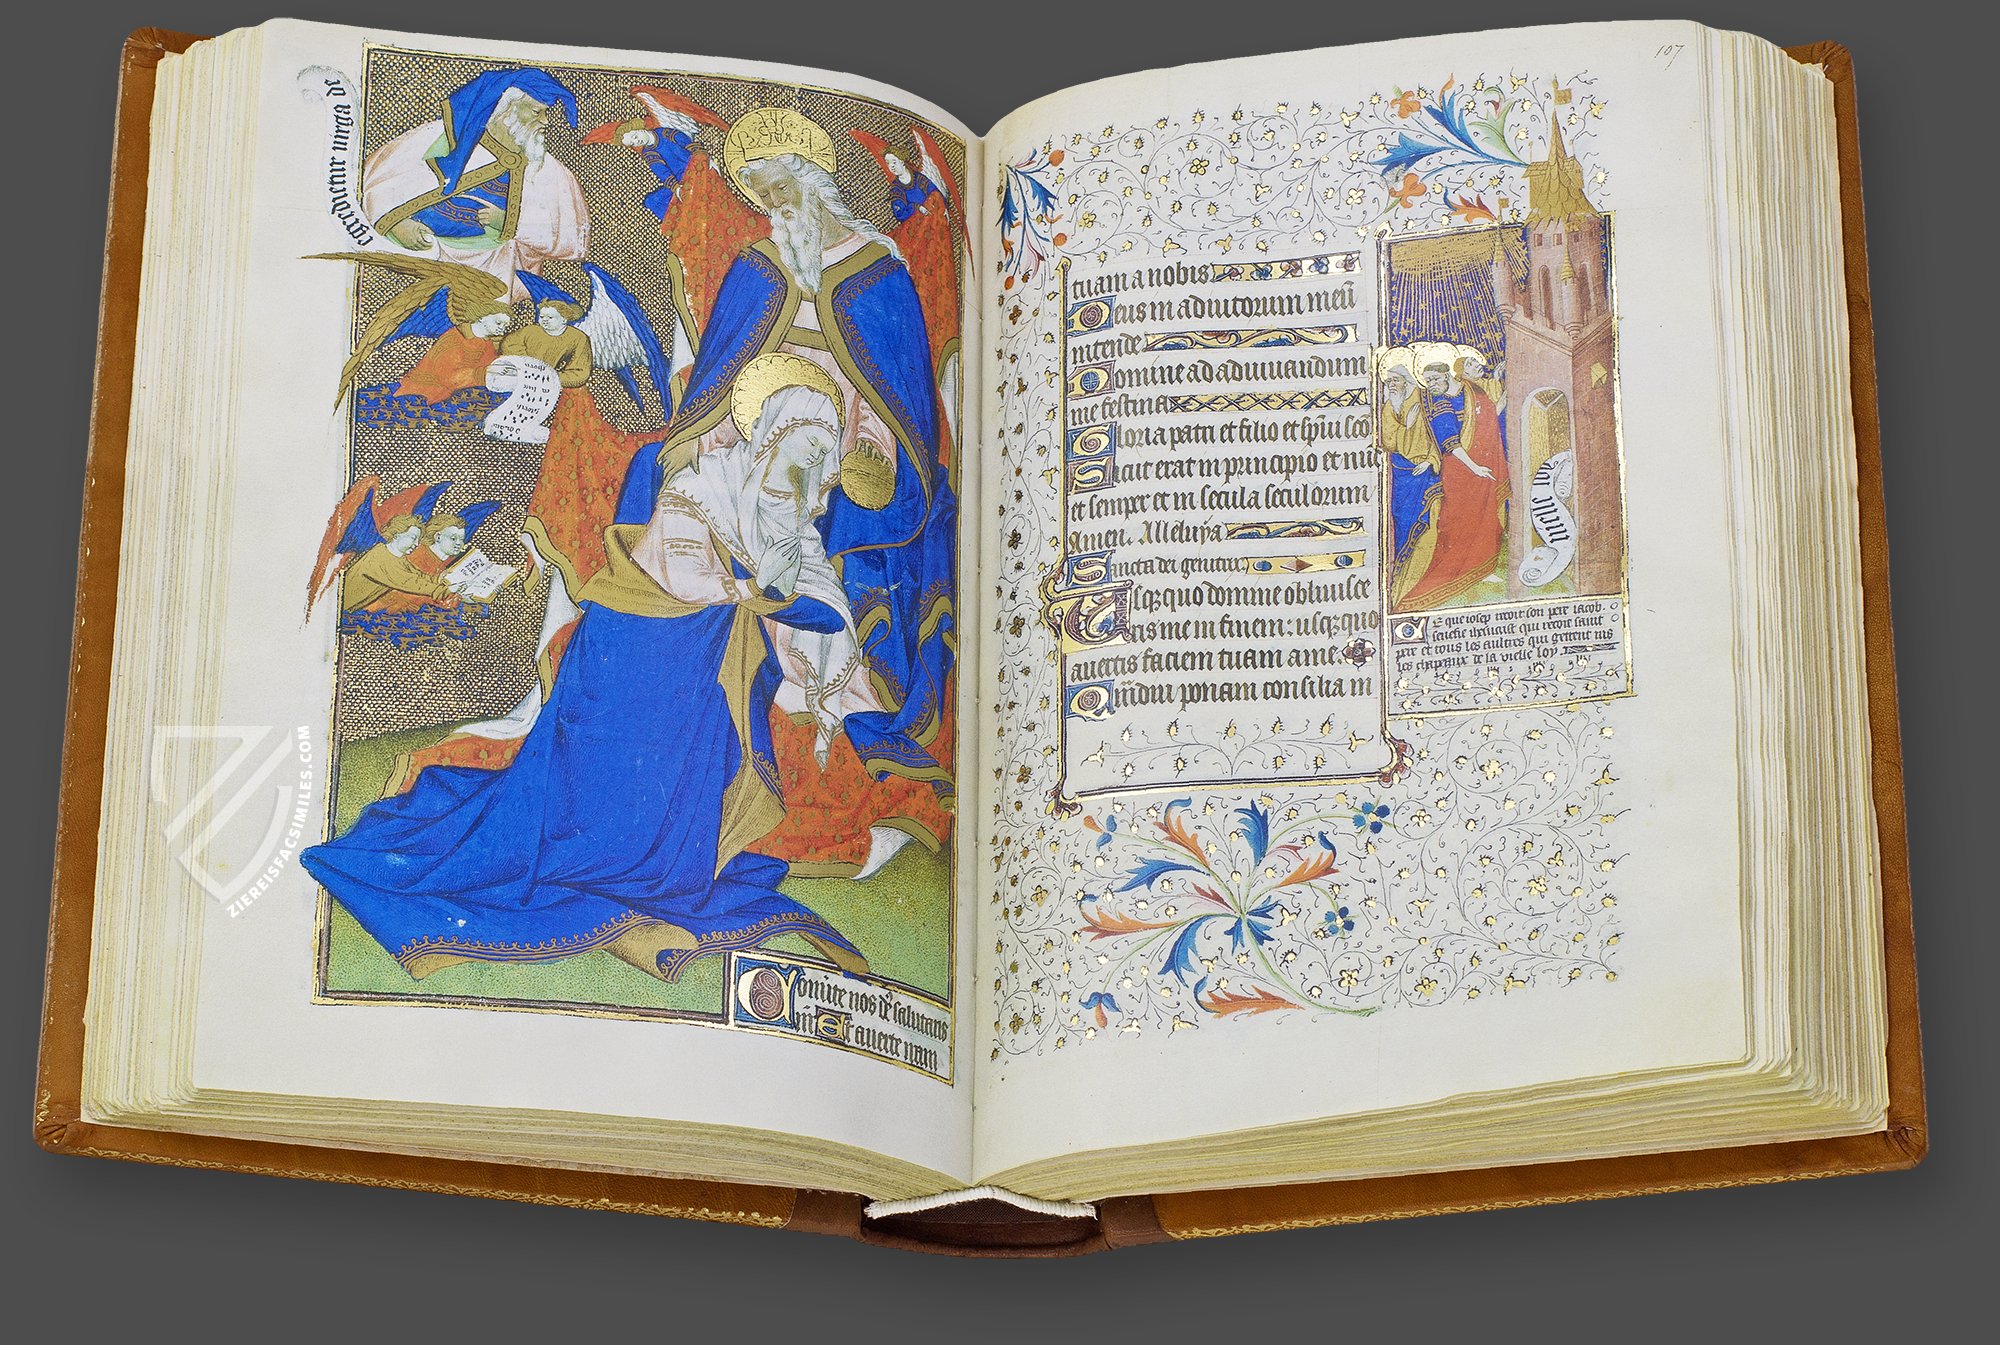 egredietur virga de
Convte nos ds salutaris
nr Et averte iram
107
tuam a nobis
Deus in adiutorium meū
intende
Domine ad adiuvandum
me festina
Gloria patri et filio et spīui sco
Sicut erat in principio et nūc
et semper et in secula seculorum
Amen. Alleluya
Sancta dei genitrix
Usq̄quo domine oblivisce
ris me in finem: usq̄quo
avertis faciem tuam a me.
Qm̄diu ponam consilia in
vielle loy
Ce que iosep recoit son pere iacob.
senefie ihesucrist qui recoit saint
pere et tous les aultres qui gettent ius
les chapeaux de la vielle loy
ZIEREISFACSIMILES.COM